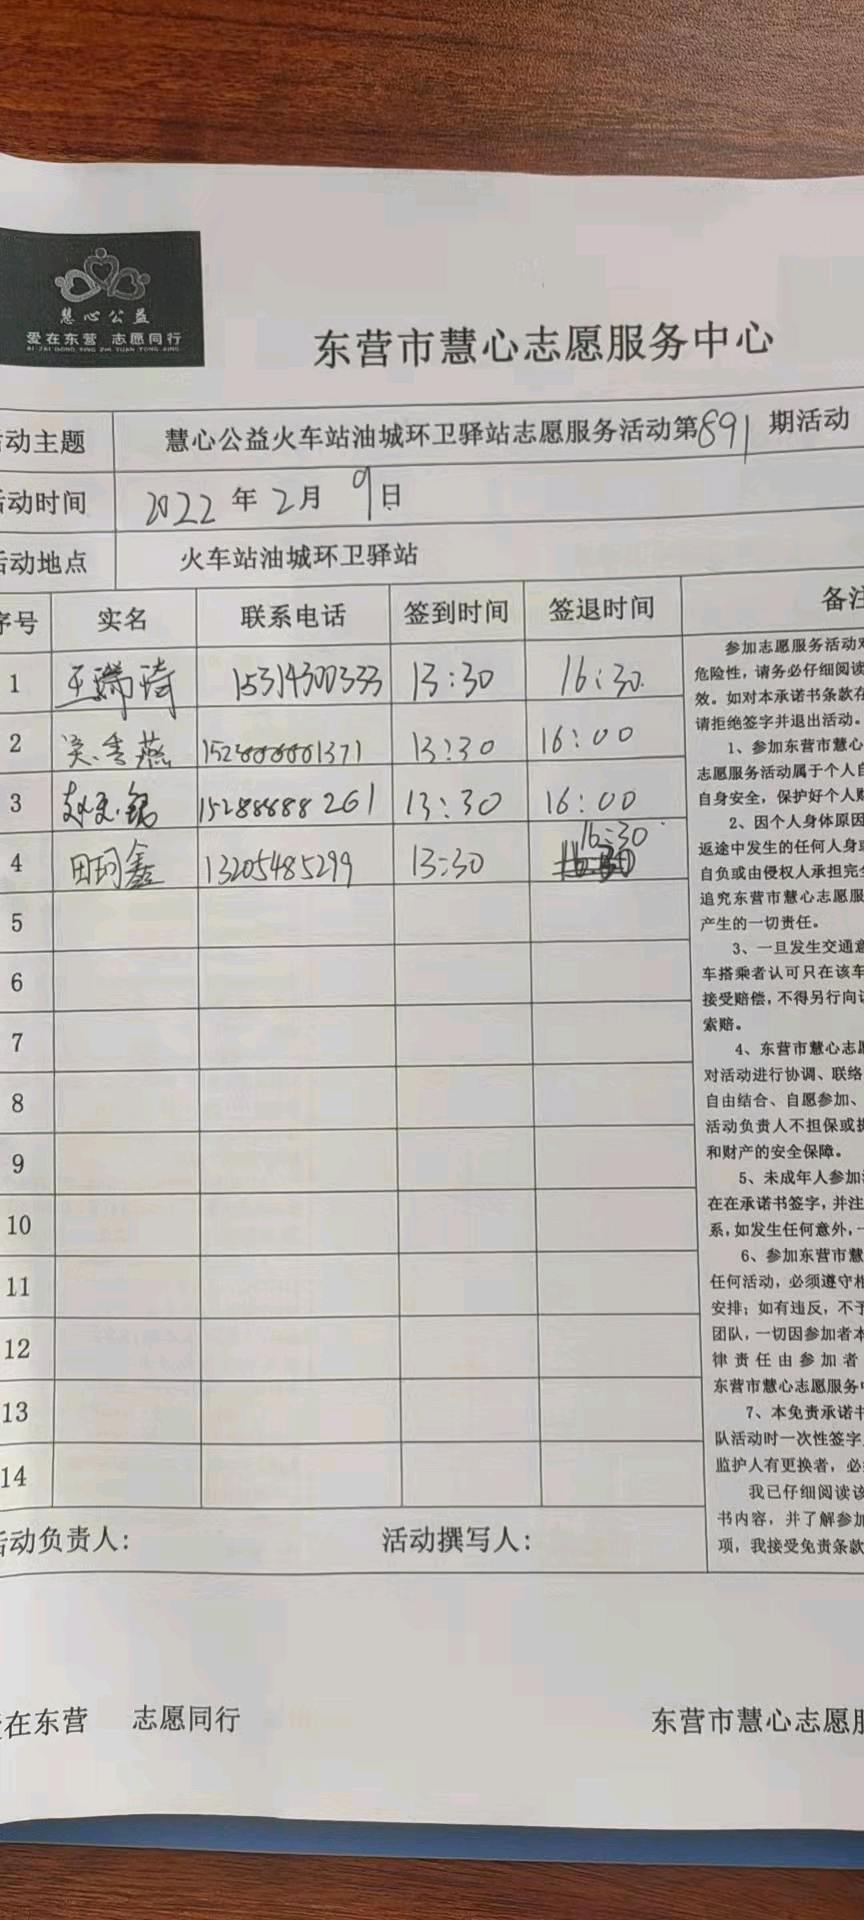 慧心公益
爱在东营 志愿同行
AI ZAI DONG YING ZHI YUAN TONG XING
东营市慧心志愿服务中心
活动主题 慧心公益火车站油城环卫驿站志愿服务活动第891期活动
活动时间 2022年2月9日
活动地点 火车站油城环卫驿站
序号 实名 联系电话 签到时间 签退时间 备注
1 王瑞琦 15314300333 13:30 16:30
2 吴秀燕 13:30 16:00
3 13:30 16:00
4 田珂鑫 13205485299 13:30 16:30
5
6
7
8
9
10
11
12
13
14
参加志愿服务活动
危险性，请务必仔细阅读
效。如对本承诺书条款存
请拒绝签字并退出活动。
1、参加东营市慧心
志愿服务活动属于个人自
自身安全，保护好个人财
2、因个人身体原因
返途中发生的任何人身或
自负或由侵权人承担完全
追究东营市慧心志愿服
产生的一切责任。
3、一旦发生交通意
车搭乘者认可只在该车
接受赔偿，不得另行向
索赔。
4、东营市慧心志愿
对活动进行协调、联络
自由结合、自愿参加、
活动负责人不担保或
和财产的安全保障。
5、未成年人参加
在在承诺书签字，并注
系，如发生任何意外，一
6、参加东营市慧
任何活动，必须遵守相
安排；如有违反，不予
团队，一切因参加者本
律责任由参加者
东营市慧心志愿服务中
7、本免责承诺书
队活动时一次性签字
监护人有更换者，必
我已仔细阅读该
书内容，并了解参加
项，我接受免责条款
活动负责人： 活动撰写人：
爱在东营 志愿同行 东营市慧心志愿服